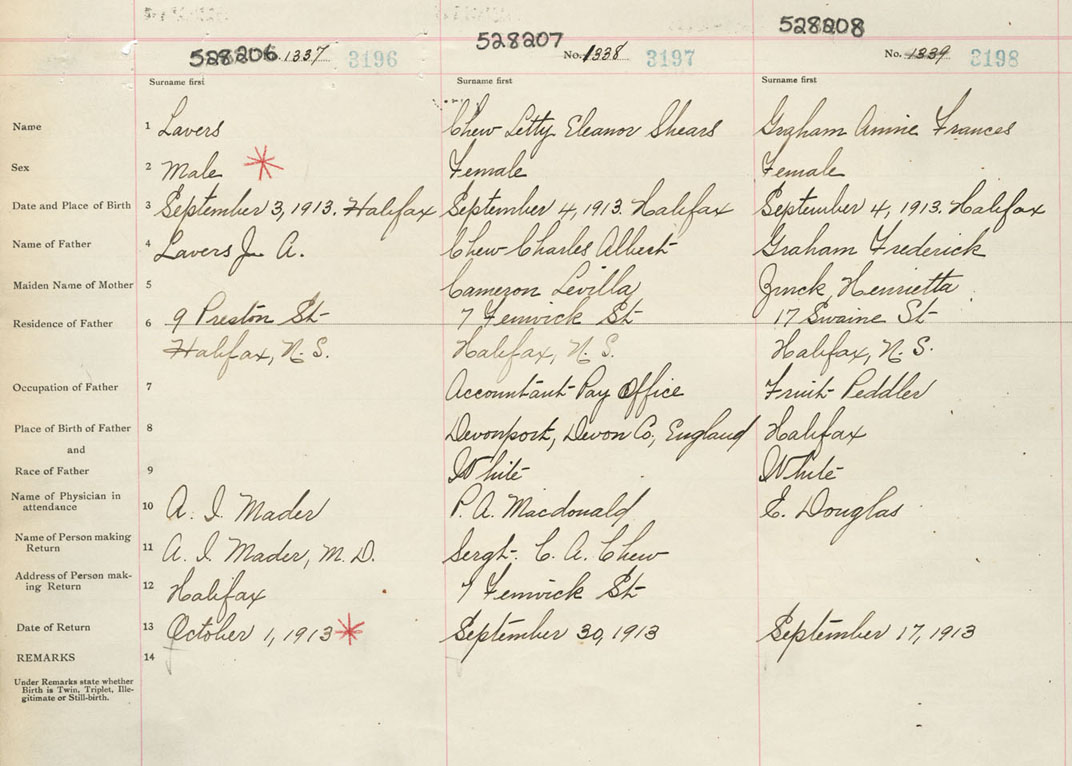 528206 1337 3196 528207 No. 1338 3197 528208 No. 1339 3198
Surname first Surname first Surname first
Name 1 Lavers Chew Letty Eleanor Shears Graham Annie Frances
Sex 2 Male Female Female
Date and Place of Birth 3 September 3, 1913. Halifax September 4, 1913. Halifax September 4, 1913. Halifax
Name of Father 4 Lavers Jn. A. Chew Charles Albert Graham Frederick
Maiden Name of Mother 5 Cameron Levilla Zinck Henrietta
Residence of Father 6 9 Preston St 7 Fenwick St 17 Swaine St
Halifax, N.S. Halifax, N.S. Halifax, N.S.
Occupation of Father 7 Accountant Pay Office Fruit Peddler
Place of Birth of Father 8 Devonport, Devon Co, England Halifax
and
Race of Father 9 White White
Name of Physician in
attendance 10 A. I. Mader P. A. Macdonald E. Douglas
Name of Person making
Return 11 A. I. Mader, M.D. Sergt. C. A. Chew
Address of Person mak-
ing Return 12 Halifax 7 Fenwick St
Date of Return 13 October 1, 1913 September 30, 1913 September 17, 1913
REMARKS 14
Under Remarks state whether
Birth is Twin, Triplet, Ille-
gitimate or Still-birth.